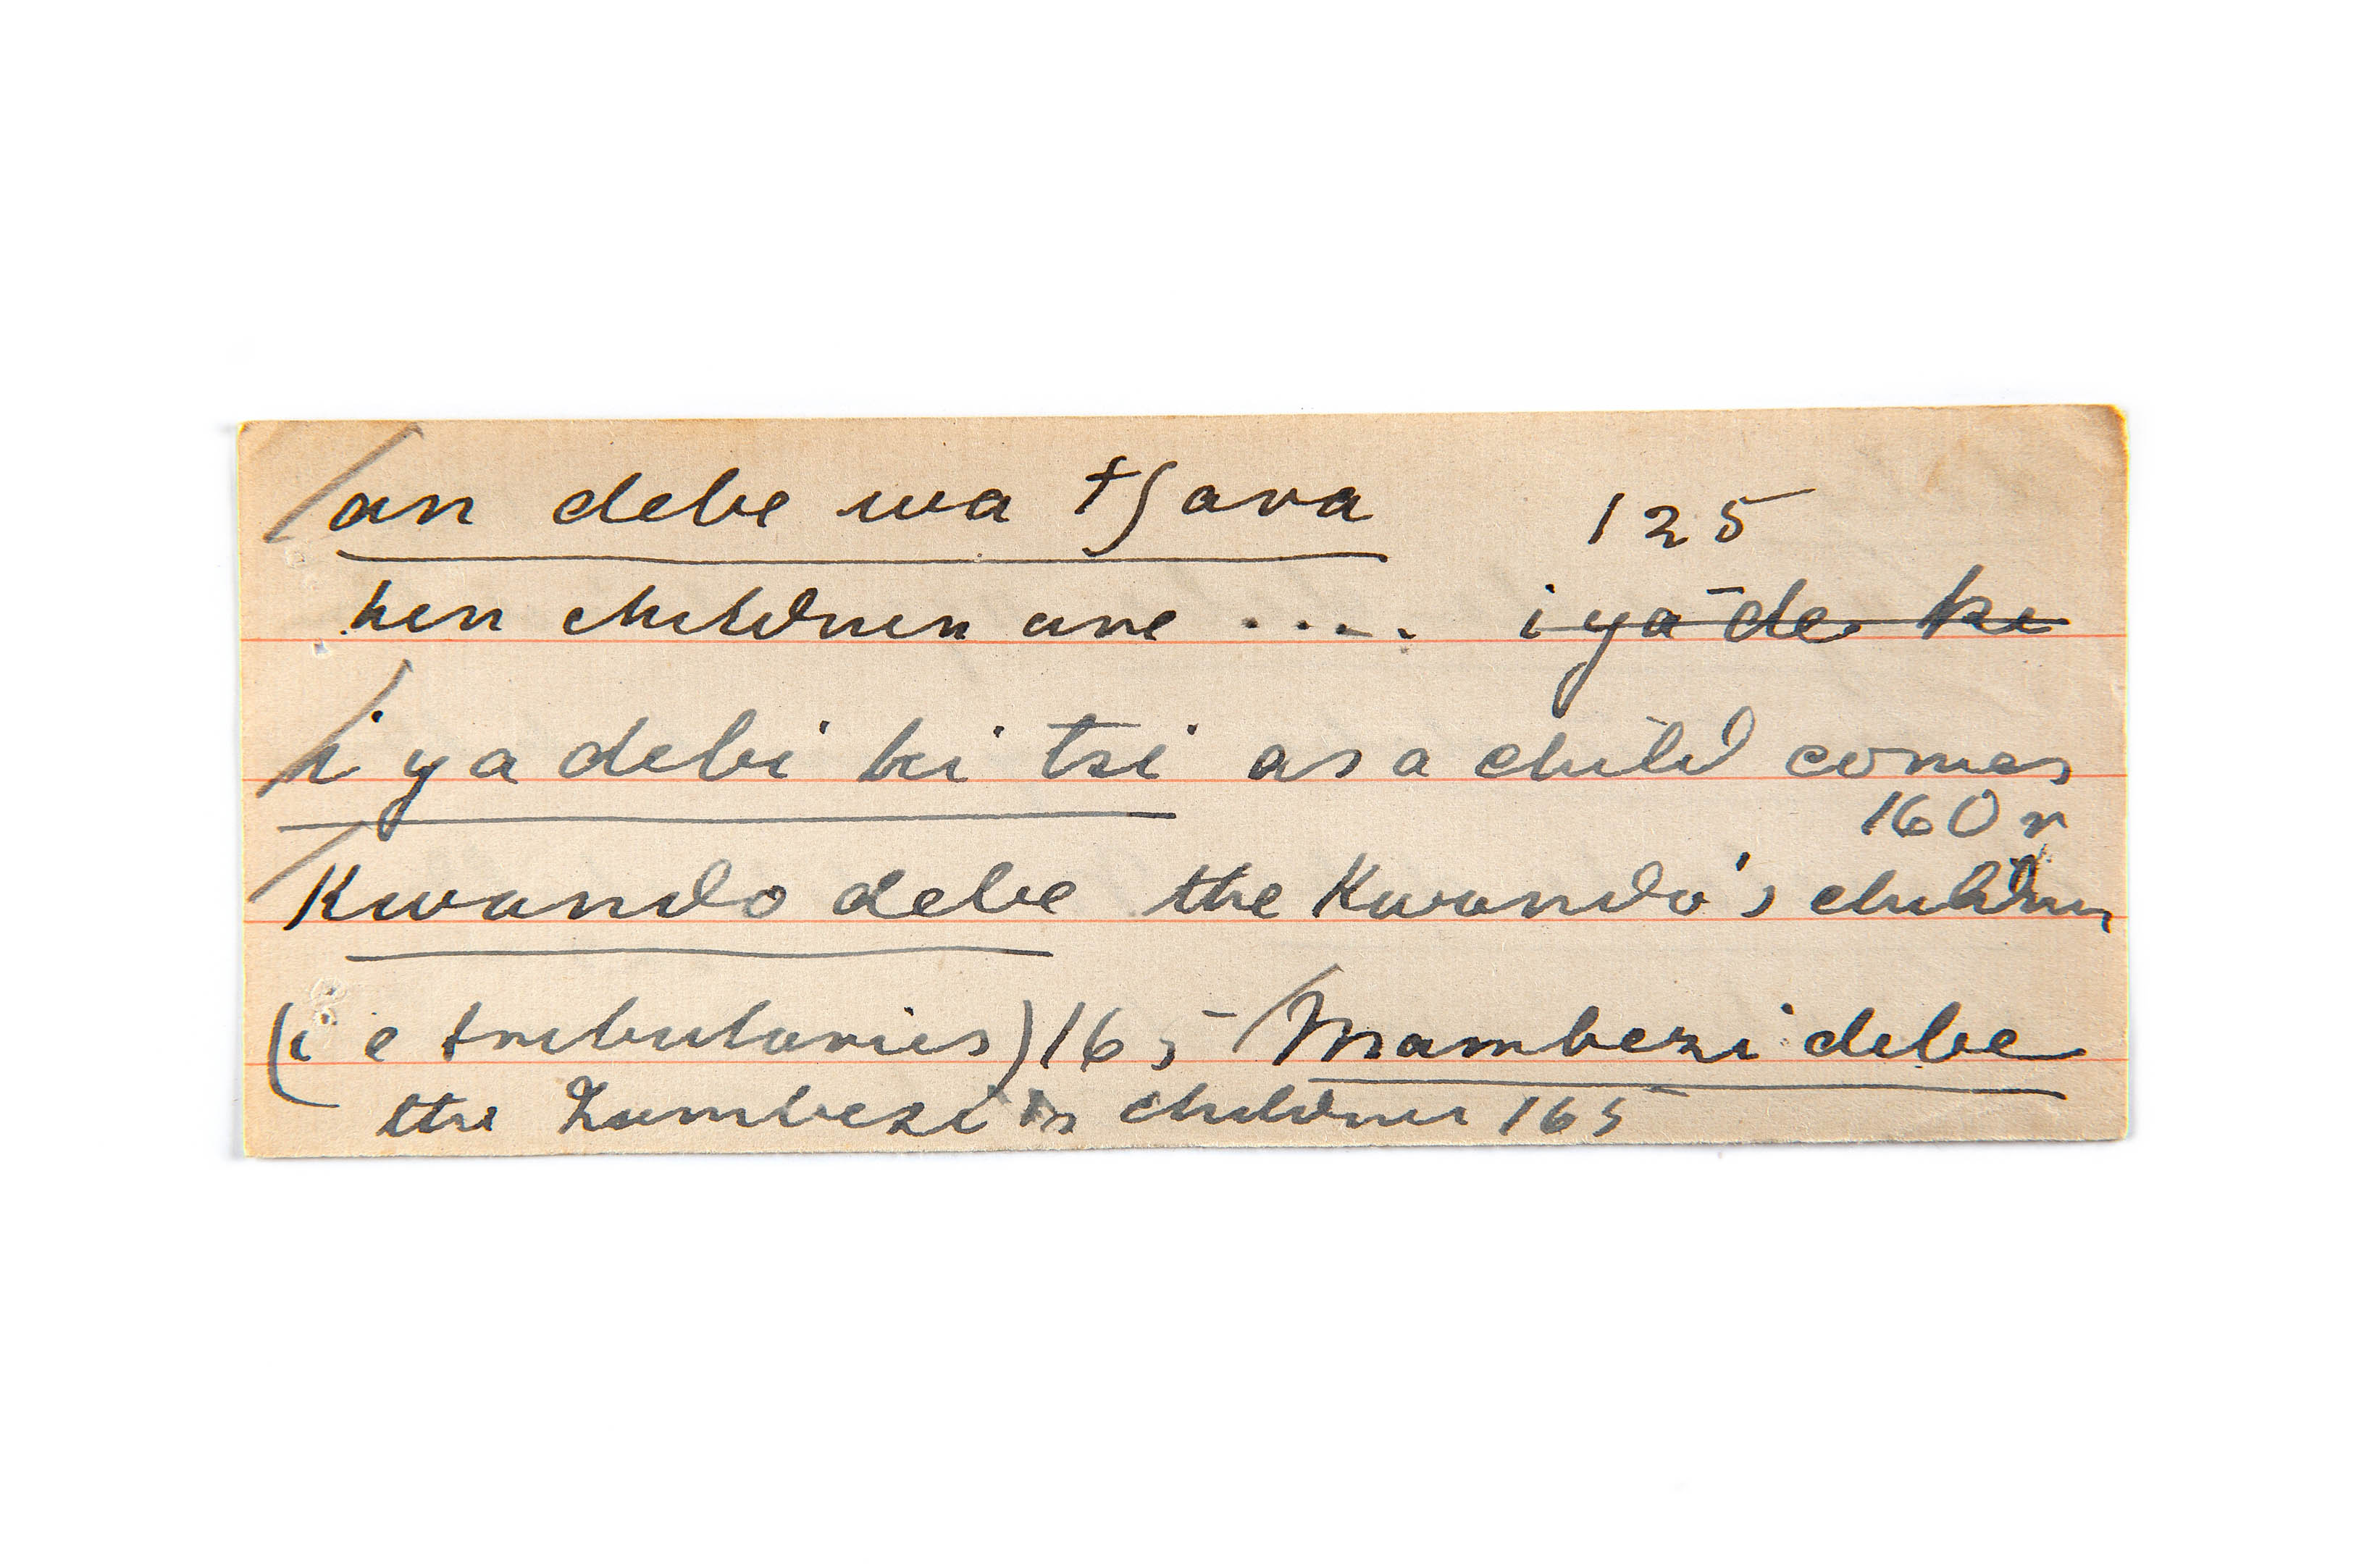 an debe wa tʃava 125
her children are .... i ya de ke
i ya debi ki tsi as a child comes
160 r
Kwando debe the Kwando's children
(i e tributaries) 165 Mambezi debe
the Zambezi's children 165